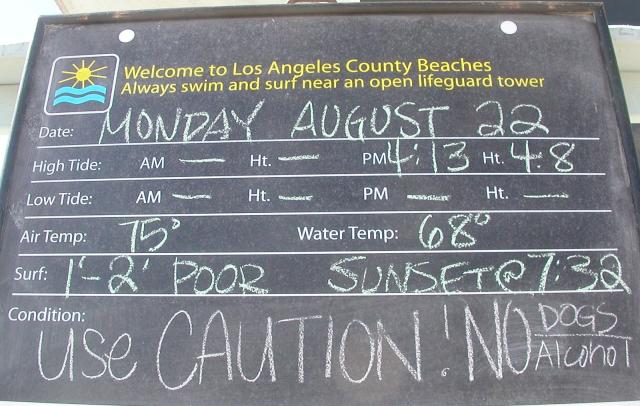 Welcome to Los Angeles County Beaches
Always swim and surf near an open lifeguard tower
Date: MONDAY AUGUST 22
High Tide: AM — Ht. — PM 4:13 Ht. 4.8
Low Tide: AM — Ht. — PM — Ht. —
Air Temp: 75° Water Temp: 68°
Surf: 1'-2' POOR SUNSET @ 7:32
Condition:
USe CAUTION! NO DOGS
Alcohol